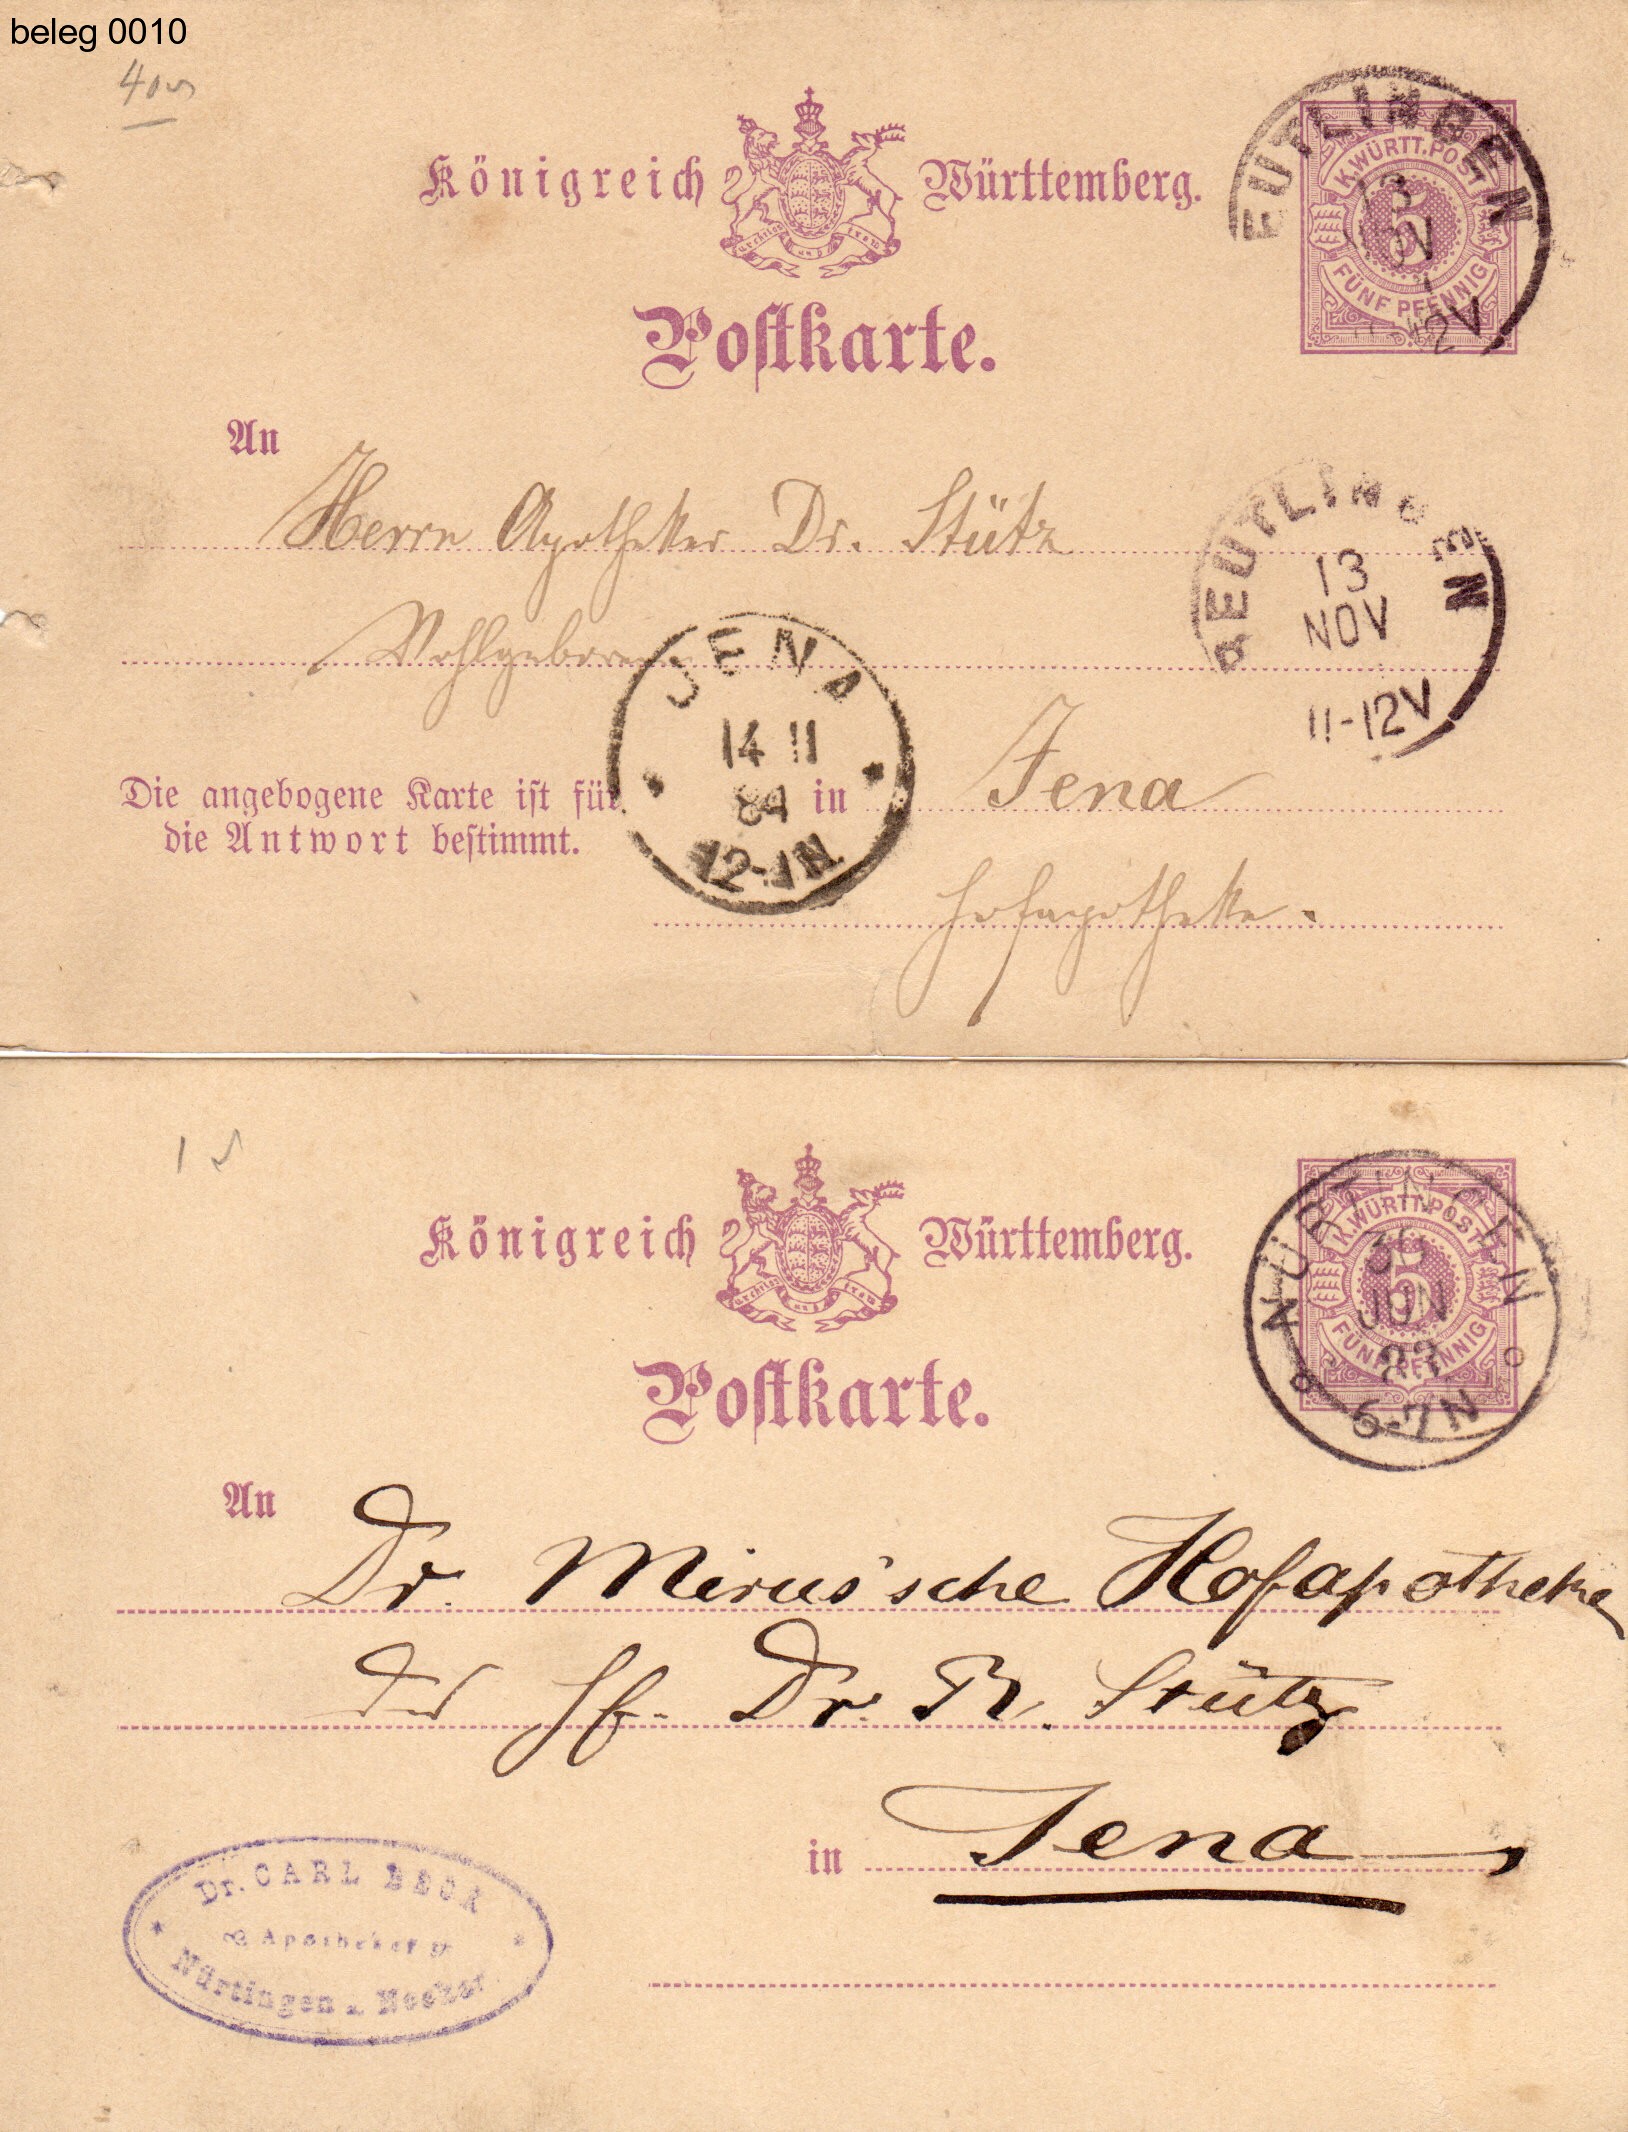 beleg 0010
Königreich Württemberg.
furchtlos und trew
Postkarte.
K.WÜRTT.POST
5
FÜNF PFENNIG
EUTLINGEN
13
OV
12V
An
Herrn Apotheker Dr. Stütz
Wohlgeboren
REUTLINGEN
13
NOV
11-12V
JENA
14 11
84
12-1N
Die angebogene Karte ist für
die Antwort bestimmt.
in Jena
Hofapotheke.
Königreich Württemberg.
furchtlos und trew
Postkarte.
K.WÜRTT.POST
5
FÜNF PFENNIG
NÜRTINGEN
30
JUN
83
6-7N
An
Dr. Mirus'sche Hofapotheke
des Hr. Dr. R. Stütz
in Jena
Dr. CARL BECK
Apotheker
Nürtingen a. Neckar